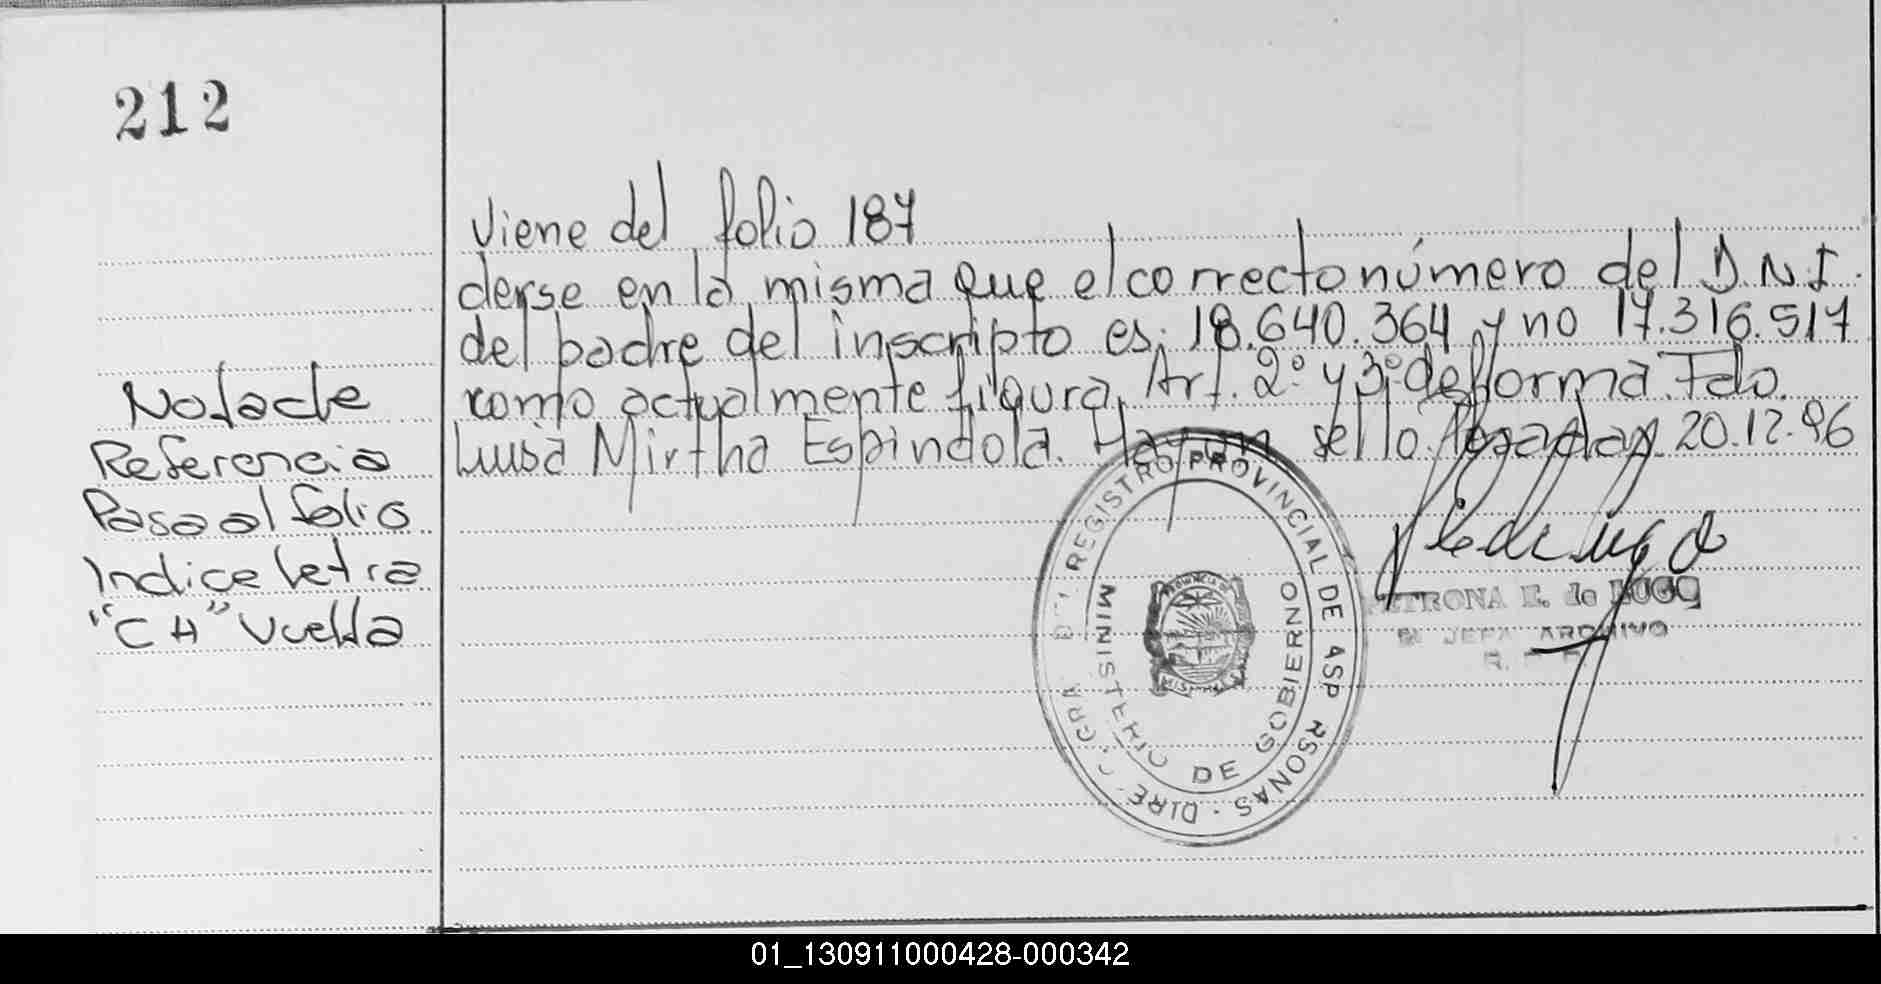 212
Viene del folio 187
derse en la misma que el correcto número del D.N.I.
del padre del inscripto es: 18.640.364 y no 17.316.517
como actualmente figura. Art. 2º y 3º de forma. Fdo.
Luisa Mirtha Espindola. Hay un sello. Posadas 20.12.96
Nota de
Referencia
Pasa al folio
Indice letra
"CH" Vuelta
REGISTRO PROVINCIAL DE
MINISTERIO DE GOBIERNO
PETRONA E. de LUGO
JEFA ARCHIVO
01_130911000428-000342